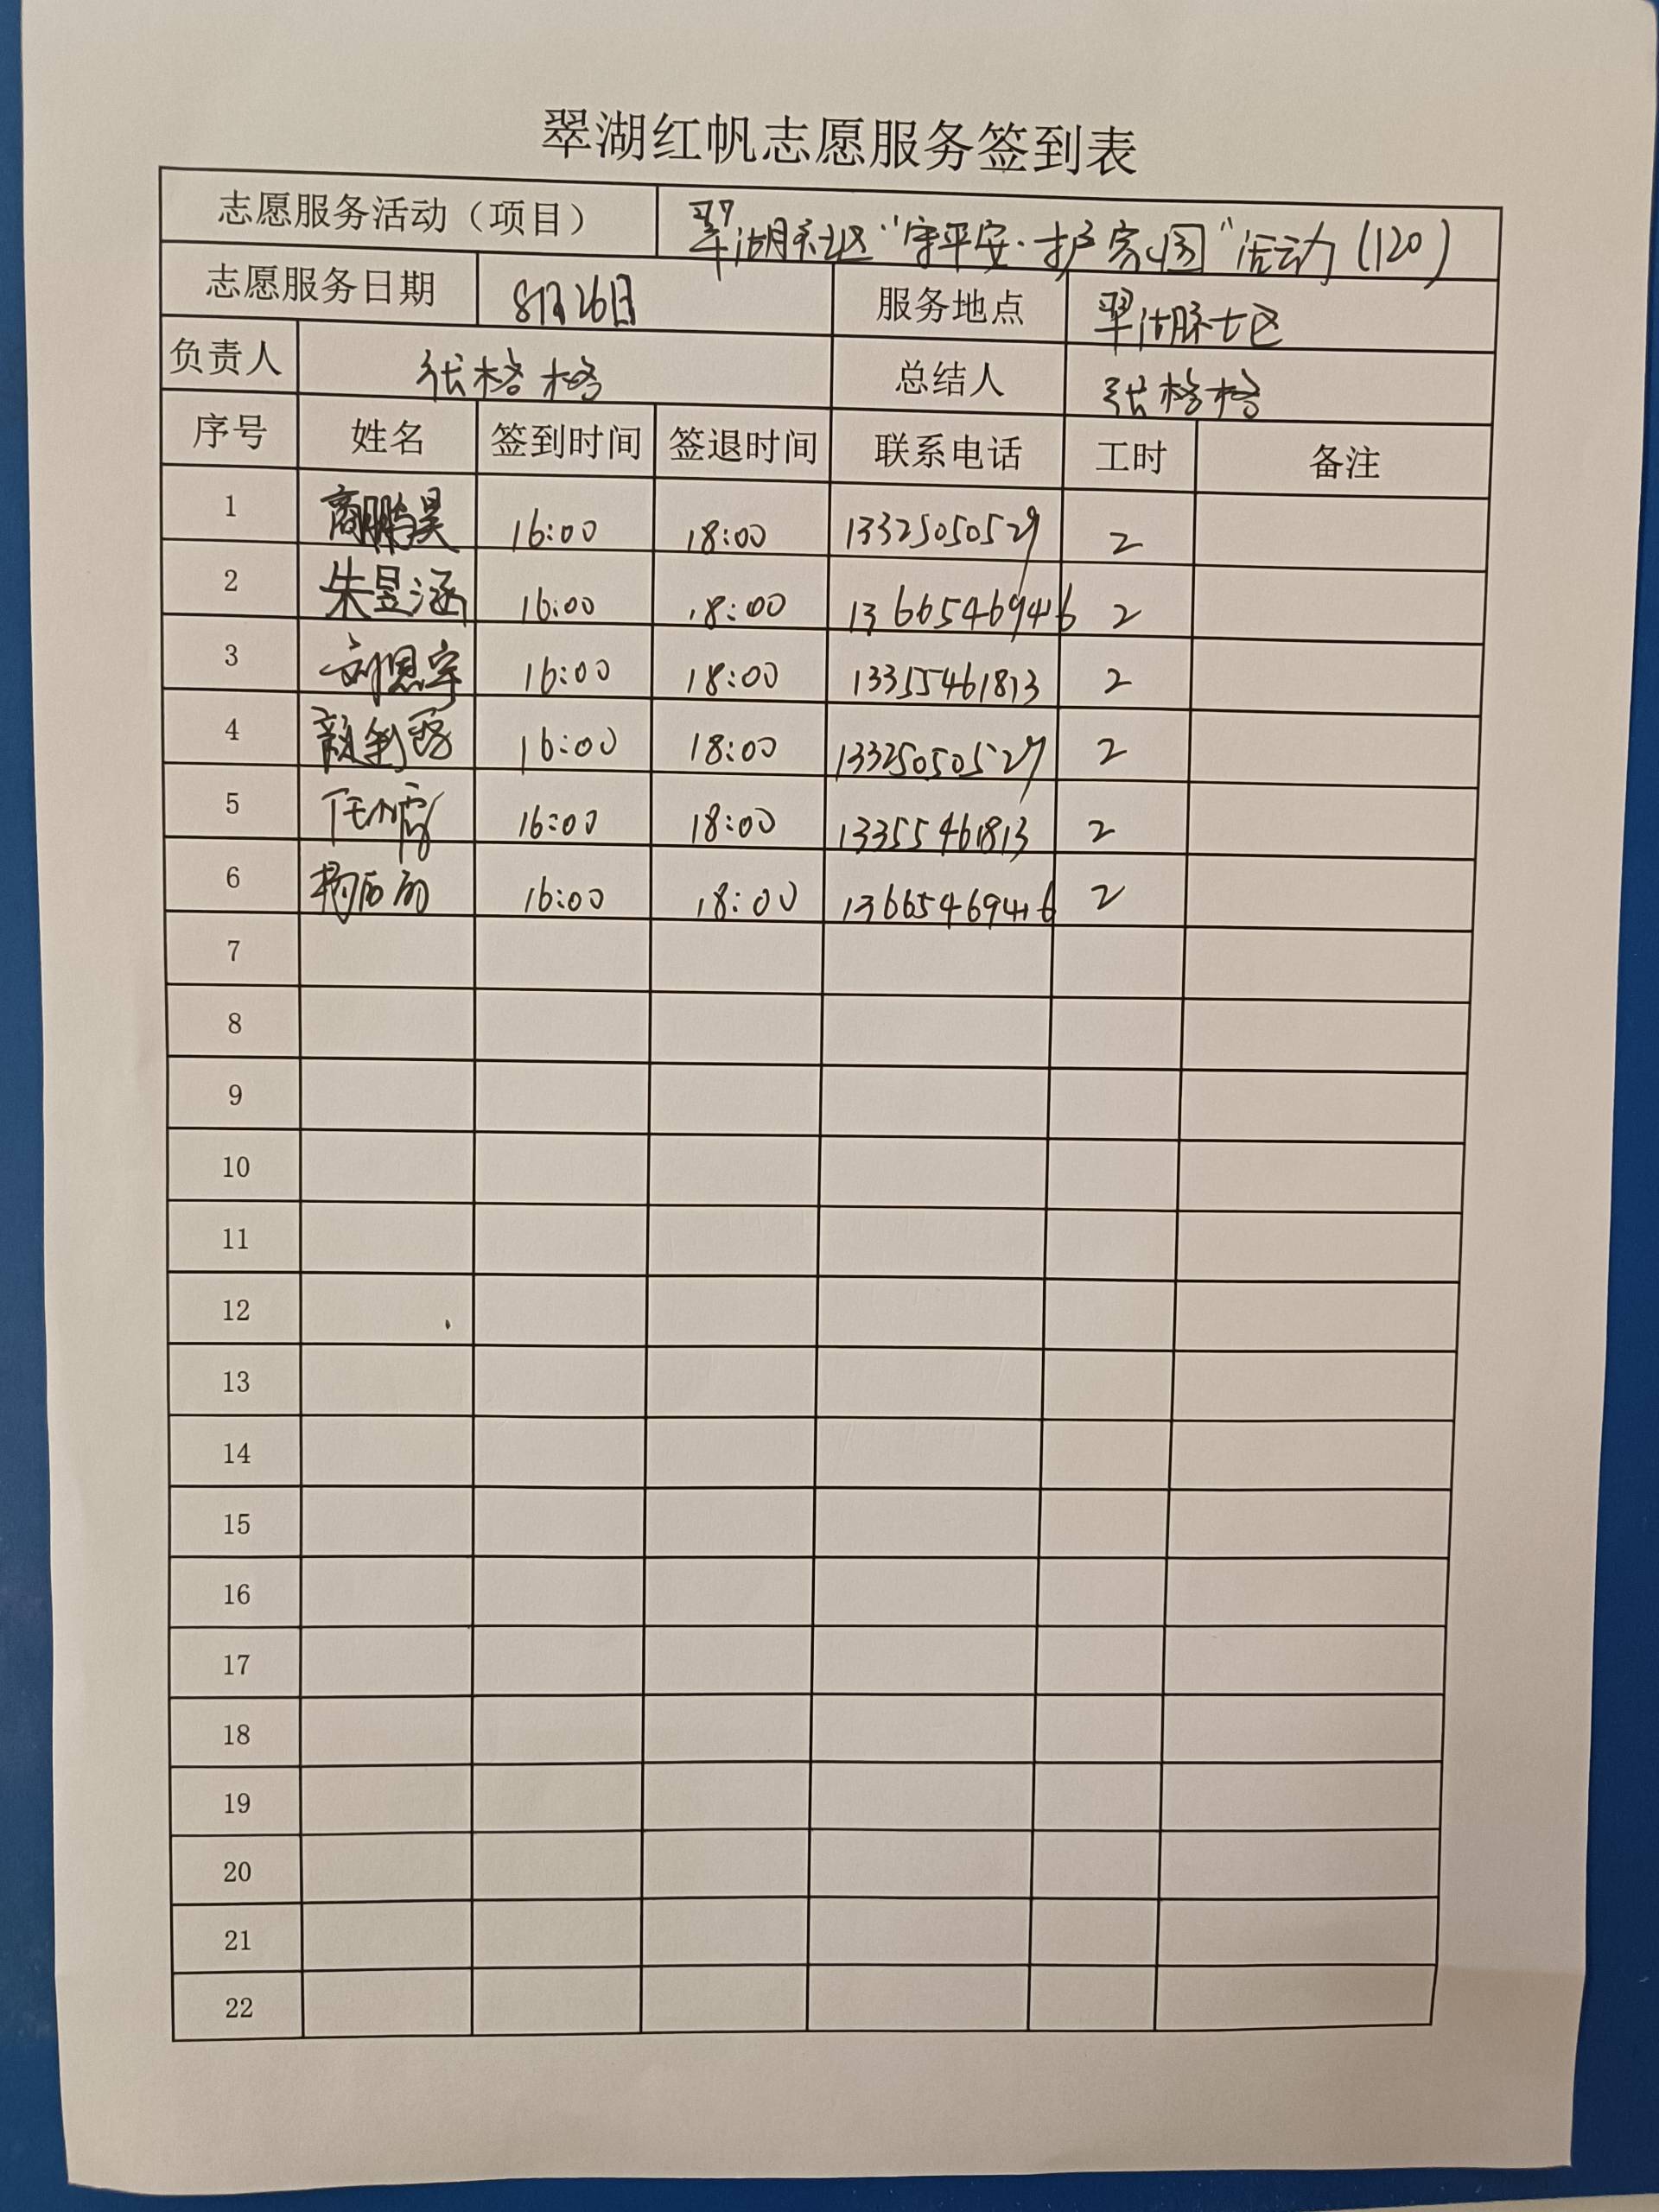 翠湖红帆志愿服务签到表
志愿服务活动（项目） 翠湖社区“守平安·护家园”活动(120)
志愿服务日期 8月26日 服务地点 翠湖社区
负责人 张格格 总结人 张格格
序号 姓名 签到时间 签退时间 联系电话 工时 备注
1 商鹏昊 16:00 18:00 13325050529 2
2 朱昱涵 16:00 18:00 13665469416 2
3 刘恩宇 16:00 18:00 13355461813 2
4 16:00 18:00 13325050527 2
5 任 16:00 18:00 13355461813 2
6 杨 16:00 18:00 13665469416 2
7
8
9
10
11
12
13
14
15
16
17
18
19
20
21
22